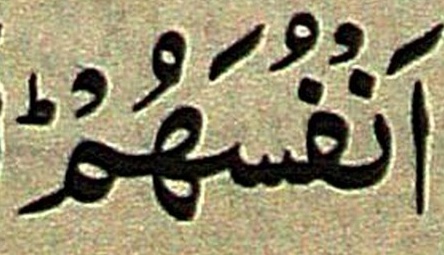 اَنْفُسَهُمْؕ